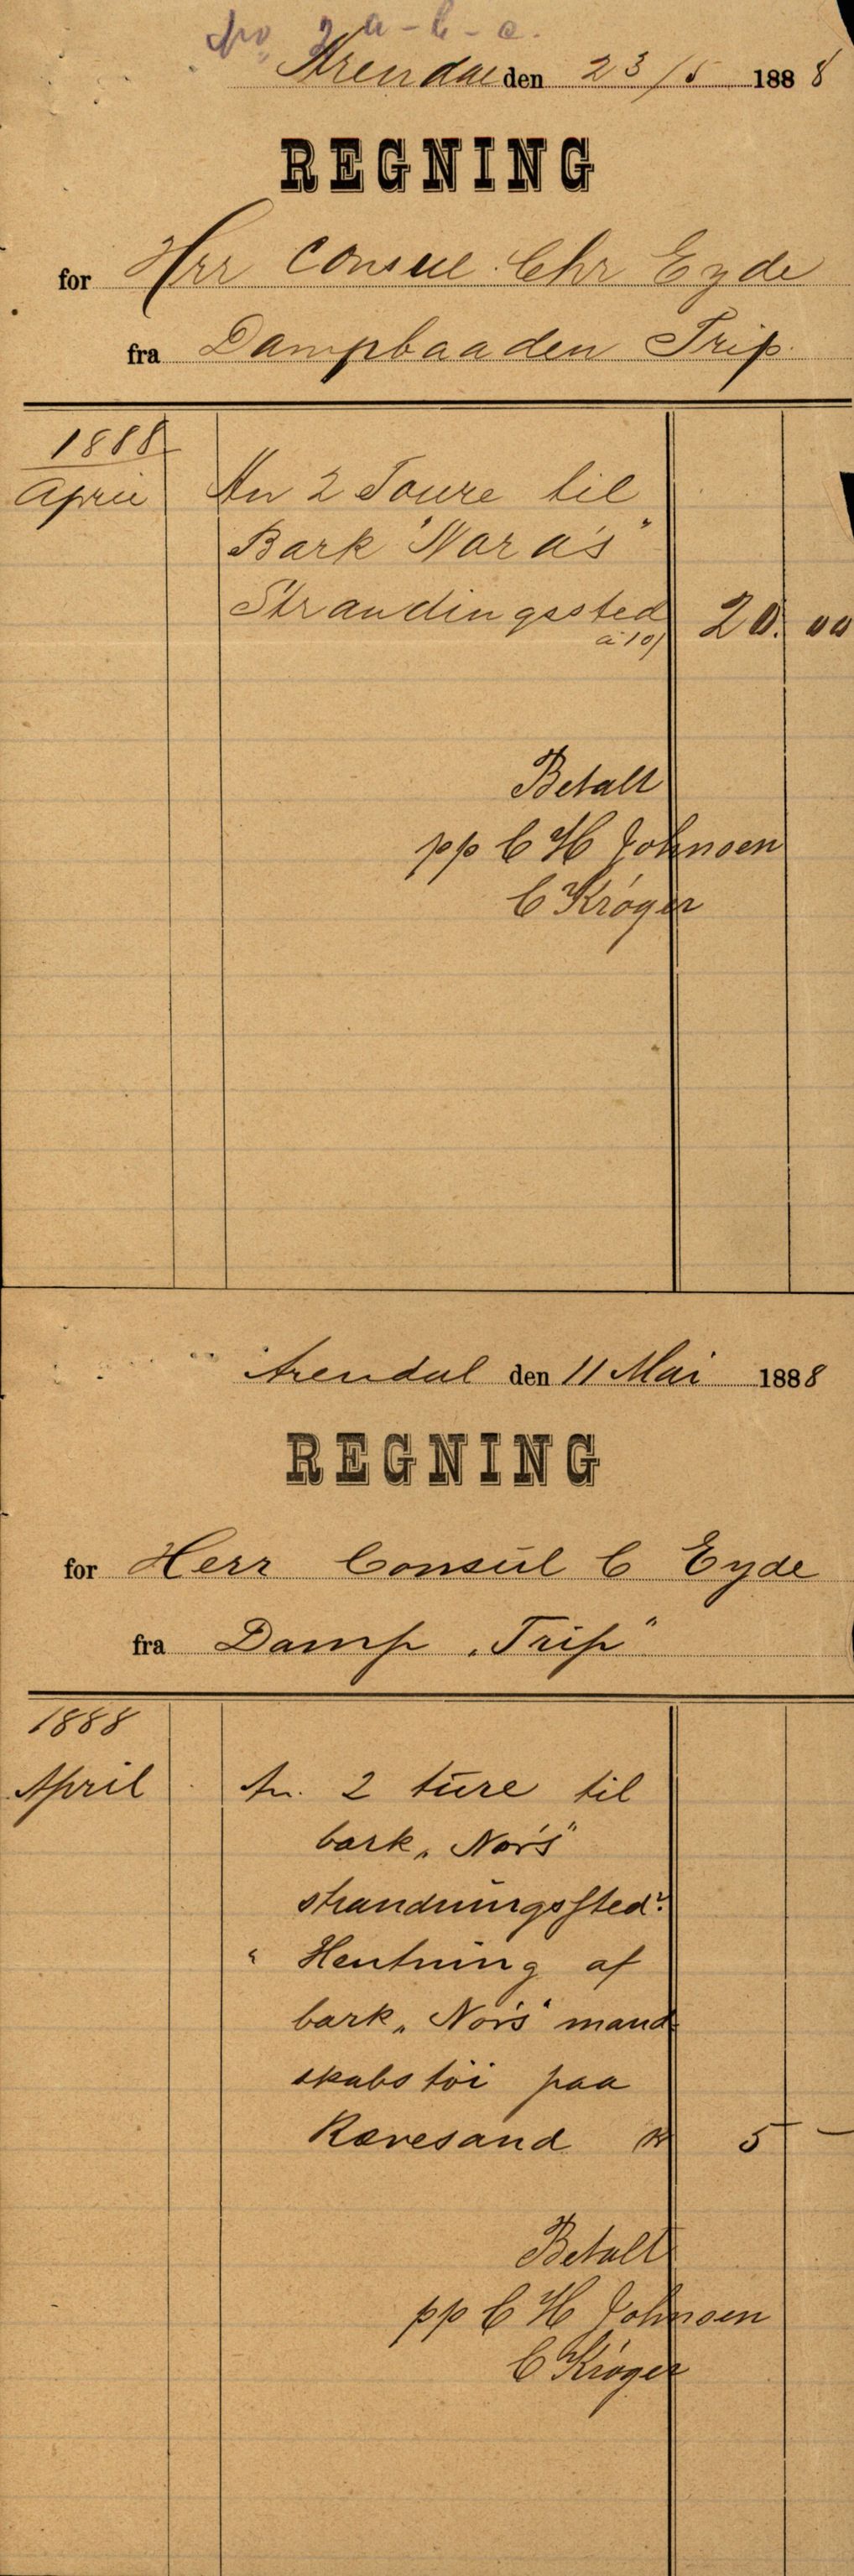 No 2 a - b - c.
Arendal den 23/5 1888
REGNING
for Hrr Consul Chr Eyde
fra Dampbaaden Trip.
1888
April An 2 Toure til
Bark "Nora's"
Strandingssted
a 10/ 20. 00
Betalt
pp C H Johnsen
C Krøger
Arendal den 11 Mai 1888
REGNING
for Herr Consul C Eyde
fra Damp „Trip"
1888
April An. 2 ture til
bark „Nor's"
strandningssted.
" Hentning af
bark „Nor's" mand-
skabstöi paa
Rævesand Kr 5 —
Betalt
pp C H Johnsen
C Krøger